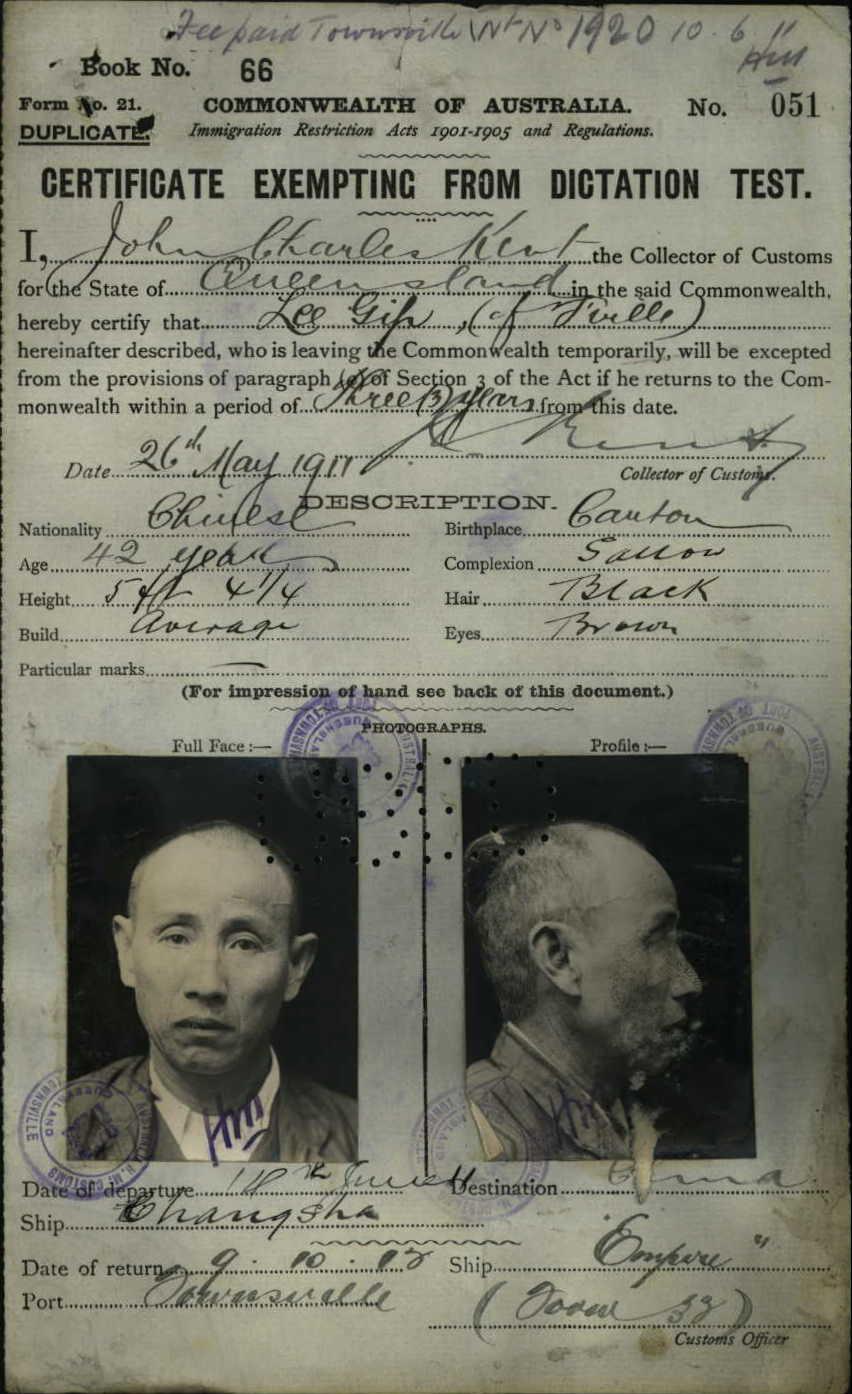 Fee paid Townsville No 1920 10.6.11
Book No. 66
Form No. 21. COMMONWEALTH OF AUSTRALIA. No. 051
DUPLICATE. Immigration Restriction Acts 1901-1905 and Regulations.
CERTIFICATE EXEMPTING FROM DICTATION TEST.
I, John Charles Kent the Collector of Customs
for the State of Queensland in the said Commonwealth,
hereby certify that Lee Gip, (of T'ville)
hereinafter described, who is leaving the Commonwealth temporarily, will be excepted
from the provisions of paragraph (a) of Section 3 of the Act if he returns to the Com-
monwealth within a period of Three (3) years from this date.
Date 26th May 1911 Kent
Collector of Customs.
DESCRIPTION.
Nationality Chinese Birthplace Canton
Age 42 years Complexion Sallow
Height 5 ft 4 1/4 Hair Black
Build Average Eyes Brown
Particular marks
(For impression of hand see back of this document.)
PHOTOGRAPHS.
Full Face :— Profile :—
HM
Date of departure June 11 Destination China
Ship Changsha
Date of return 9.10. Ship Empire
Port Townsville
Customs Officer